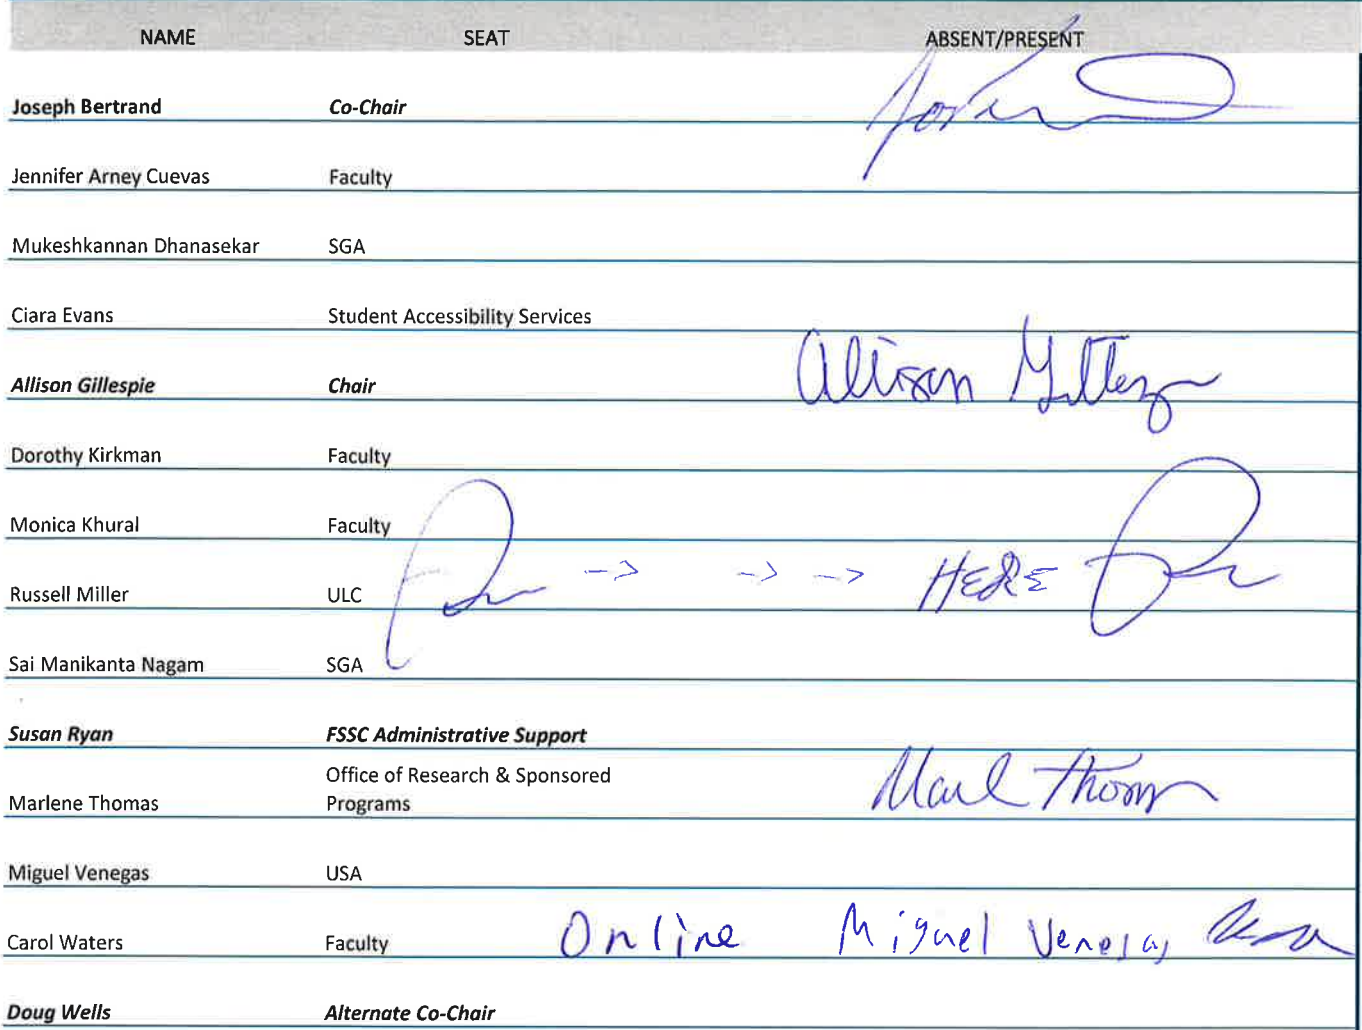 NAME SEAT ABSENT/PRESENT
Joseph Bertrand Co-Chair
Jennifer Arney Cuevas Faculty
Mukeshkannan Dhanasekar SGA
Ciara Evans Student Accessibility Services
Allison Gillespie Chair Allison
Dorothy Kirkman Faculty
Monica Khural Faculty
Russell Miller ULC -> -> -> HERE
Sai Manikanta Nagam SGA
Susan Ryan FSSC Administrative Support
Office of Research & Sponsored
Marlene Thomas Programs
Miguel Venegas USA
Carol Waters Faculty Online Miguel Venegas
Doug Wells Alternate Co-Chair